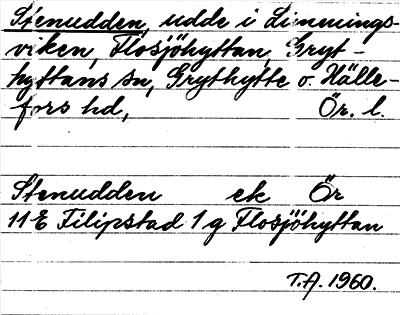 Stenudden, udde i Limmings-
viken, Flosjöhyttan, Gryt-
hyttans sn, Grythytte o. Hälle-
fors hd, Ör. l.
Stenudden ek Ör
11E Filipstad 1g Flosjöhyttan
T.A. 1960.